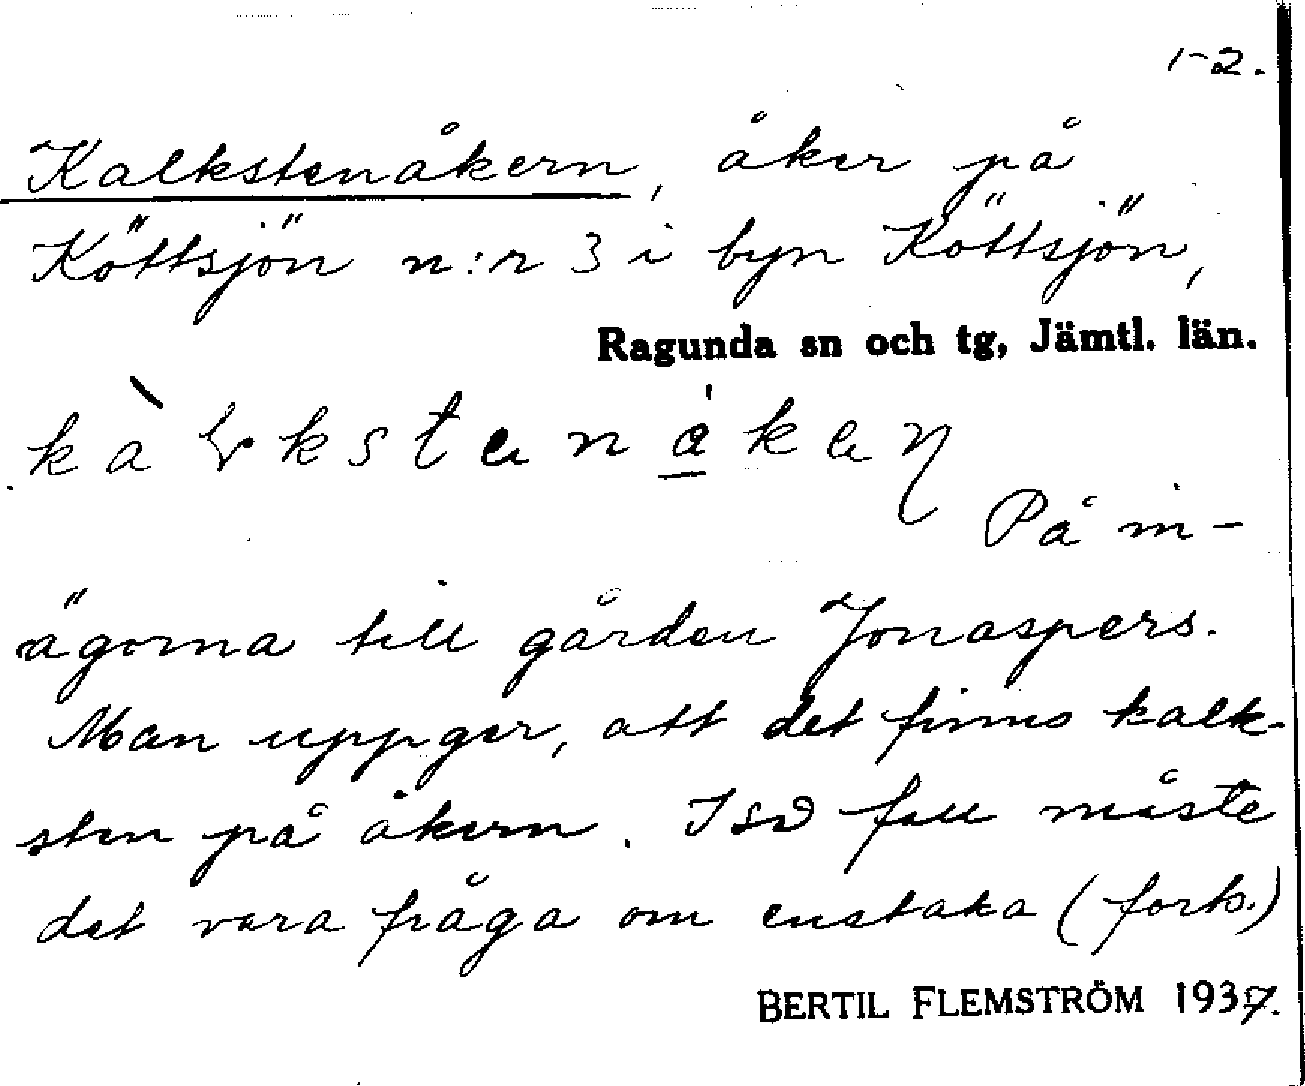 1-2.
Kalkstenåkern, åker på
Köttsjön n:r 3 i byn Köttsjön,
Ragunda sn och tg, Jämtl. län.
På in-
ägorna till gården Jonaspers.
Man uppger, att det finns kalk-
sten på åkern. I så fall måste
det vara fråga om enstaka (forts.)
BERTIL FLEMSTRÖM 1937.